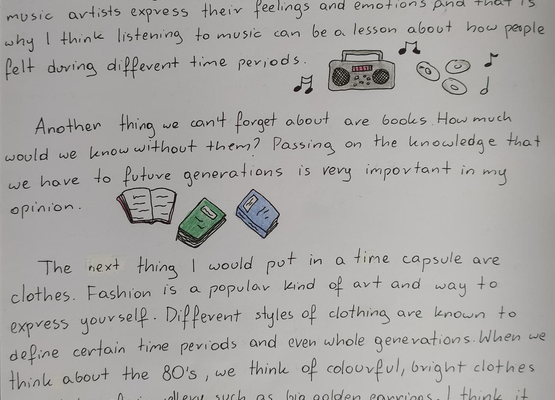 music artists express their feelings and emotions and that is
why I think listening to music can be a lesson about how people
felt during different time periods.
Another thing we can't forget about are books. How much
would we know without them? Passing on the knowledge that
we have to future generations is very important in my
opinion.
The next thing I would put in a time capsule are
clothes. Fashion is a popular kind of art and way to
express yourself. Different styles of clothing are known to
define certain time periods and even whole generations. When we
think about the 80's, we think of colourful, bright clothes
such as big golden earrings. I think it